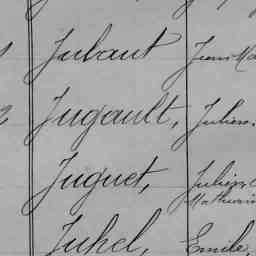 Jubaut Jean Ma
Jugault, Julien.
Juguet, Julien
Mathurin
Juhel, Emile,